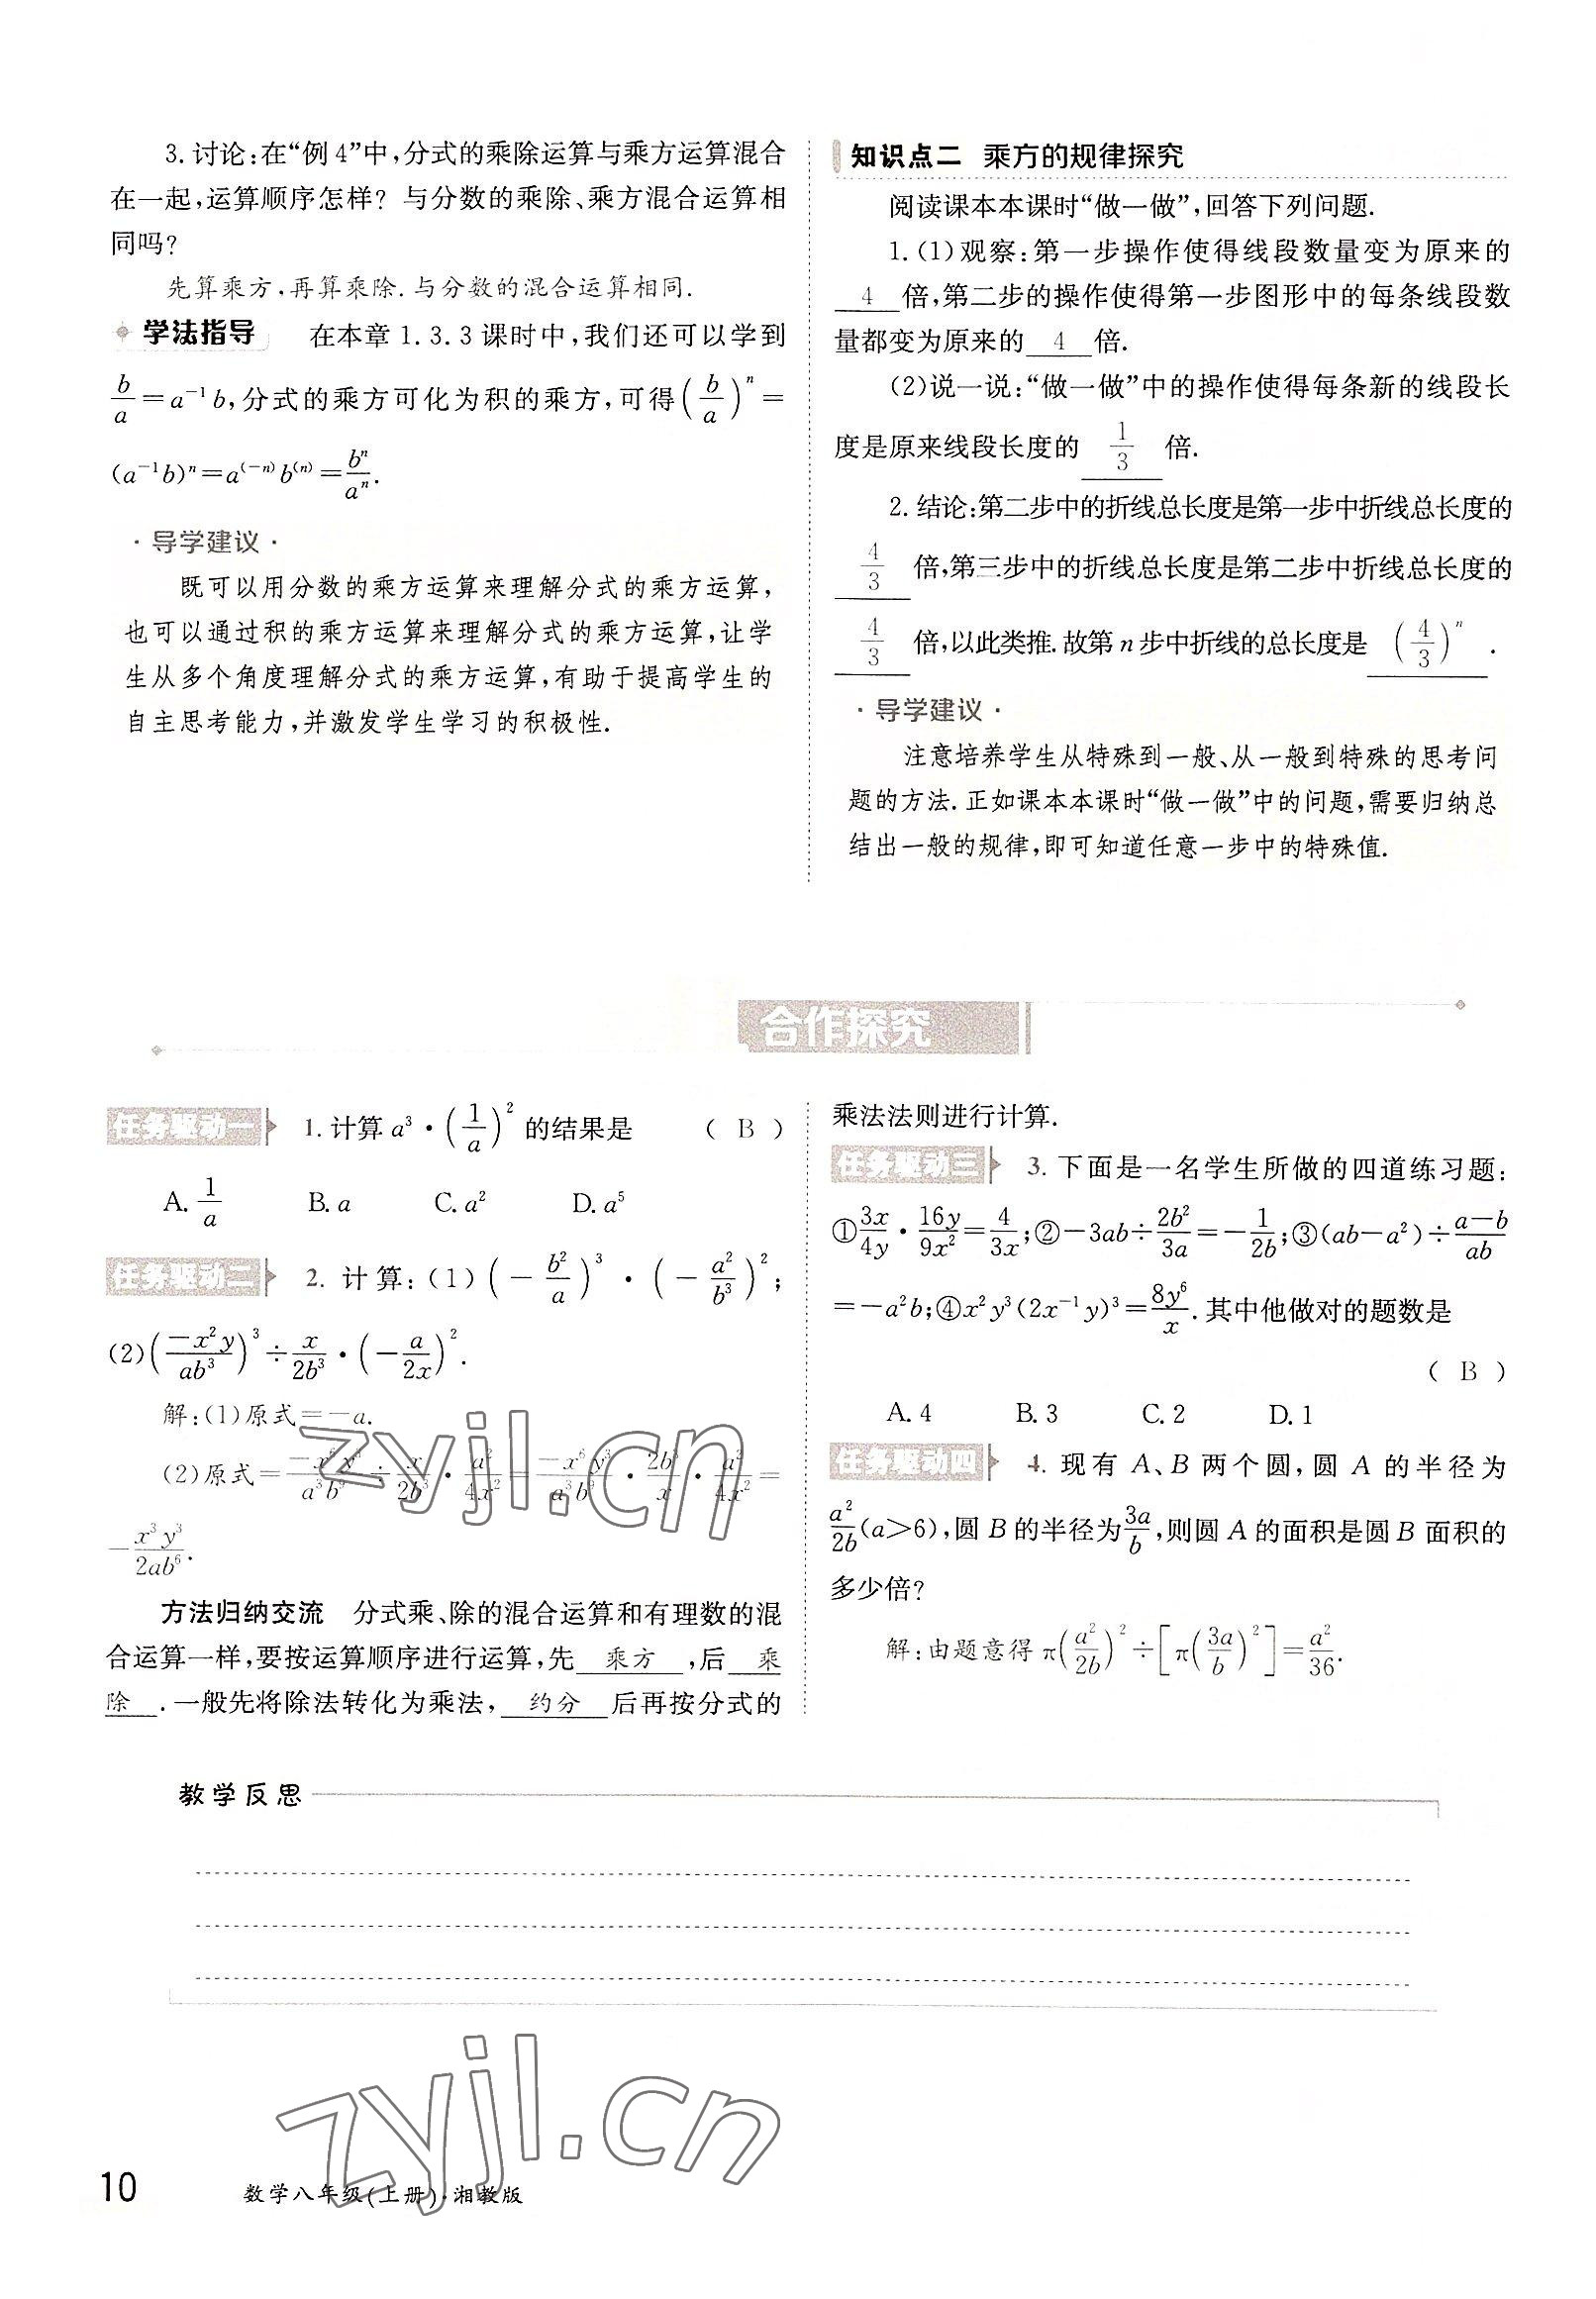 3.讨论:在“例 4”中,分式的乘除运算与乘方运算混合
在一起,运算顺序怎样? 与分数的乘除、乘方混合运算相
同吗?
先算乘方,再算乘除.与分数的混合运算相同.
学法指导 在本章 1.3.3 课时中,我们还可以学到
b/a=a⁻¹b,分式的乘方可化为积的乘方,可得(b/a)ⁿ=
(a⁻¹b)ⁿ=a⁽⁻ⁿ⁾b⁽ⁿ⁾=bⁿ/aⁿ.
·导学建议·
既可以用分数的乘方运算来理解分式的乘方运算,
也可以通过积的乘方运算来理解分式的乘方运算,让学
生从多个角度理解分式的乘方运算,有助于提高学生的
自主思考能力,并激发学生学习的积极性.
知识点二 乘方的规律探究
阅读课本本课时“做一做”,回答下列问题.
1.(1)观察:第一步操作使得线段数量变为原来的
4 倍,第二步的操作使得第一步图形中的每条线段数
量都变为原来的 4 倍.
(2)说一说:“做一做”中的操作使得每条新的线段长
度是原来线段长度的 1/3 倍.
2.结论:第二步中的折线总长度是第一步中折线总长度的
4/3 倍,第三步中的折线总长度是第二步中折线总长度的
4/3 倍,以此类推.故第 n 步中折线的总长度是 (4/3)ⁿ .
·导学建议·
注意培养学生从特殊到一般、从一般到特殊的思考问
题的方法.正如课本本课时“做一做”中的问题,需要归纳总
结出一般的规律,即可知道任意一步中的特殊值.
合作探究
任务驱动一 1.计算 a³·(1/a)² 的结果是 ( B )
A.1/a B.a C.a² D.a⁵
任务驱动二 2.计算:(1)(-b²/a)³·(-a²/b³)²;
(2)(-x²y/ab³)³÷x/2b³·(-a/2x)².
解:(1)原式=-a.
(2)原式=-x⁶y³/a³b⁹÷x/2b³·a²/4x²=-x⁶y³/a³b⁹·2b³/x·a²/4x²=
-x³y³/2ab⁶.
方法归纳交流 分式乘、除的混合运算和有理数的混
合运算一样,要按运算顺序进行运算,先 乘方 ,后 乘
除 .一般先将除法转化为乘法, 约分 后再按分式的
乘法法则进行计算.
任务驱动三 3.下面是一名学生所做的四道练习题:
①3x/4y·16y/9x²=4/3x;②-3ab÷2b²/3a=-1/2b;③(ab-a²)÷a-b/ab
=-a²b;④x²y³(2x⁻¹y)³=8y⁶/x.其中他做对的题数是
( B )
A.4 B.3 C.2 D.1
任务驱动四 4.现有 A、B 两个圆,圆 A 的半径为
a²/2b(a>6),圆 B 的半径为3a/b,则圆 A 的面积是圆 B 面积的
多少倍?
解:由题意得 π(a²/2b)²÷[π(3a/b)²]=a²/36.
教学反思
zyjl.cn
zyjl.cn
10 数学八年级(上册)·湘教版